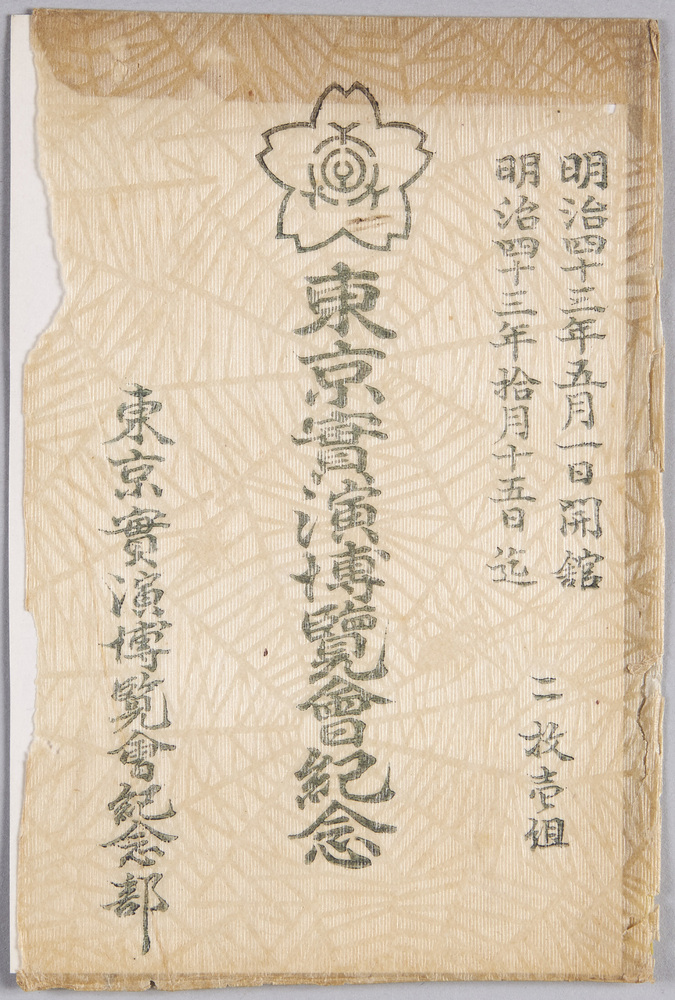 明治四十三年五月一日開舘
明治四十三年拾月十五日迄
二枚壱組
東京實演博覽會紀念
東京實演博覧會紀念部